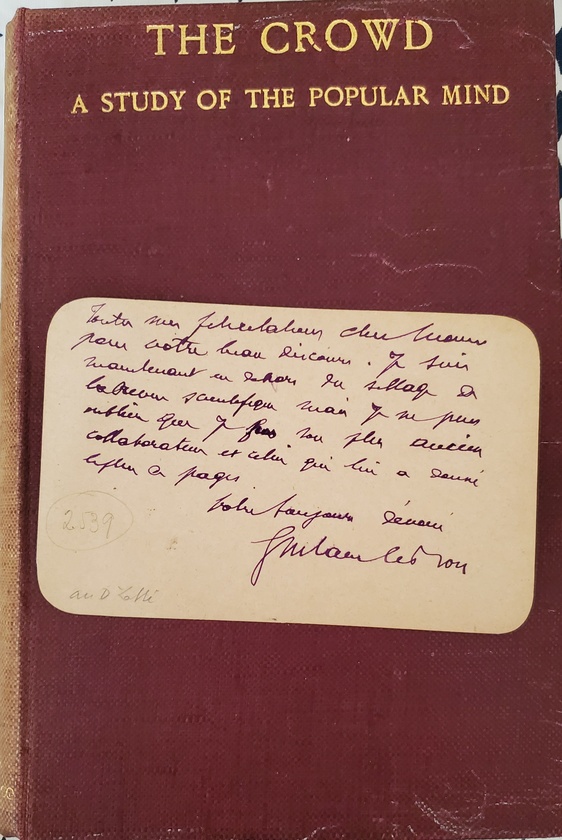 THE CROWD
A STUDY OF THE POPULAR MIND
Toutes mes félicitations cher
pour votre beau discours. Je suis
maintenant en dehors du sillage de
la scientifique mais je ne puis
oublier que je son plus ancien
collaborateur et celui qui lui a donné
le plus de pages
votre toujours dévoué
Gustave Le Bon
2539